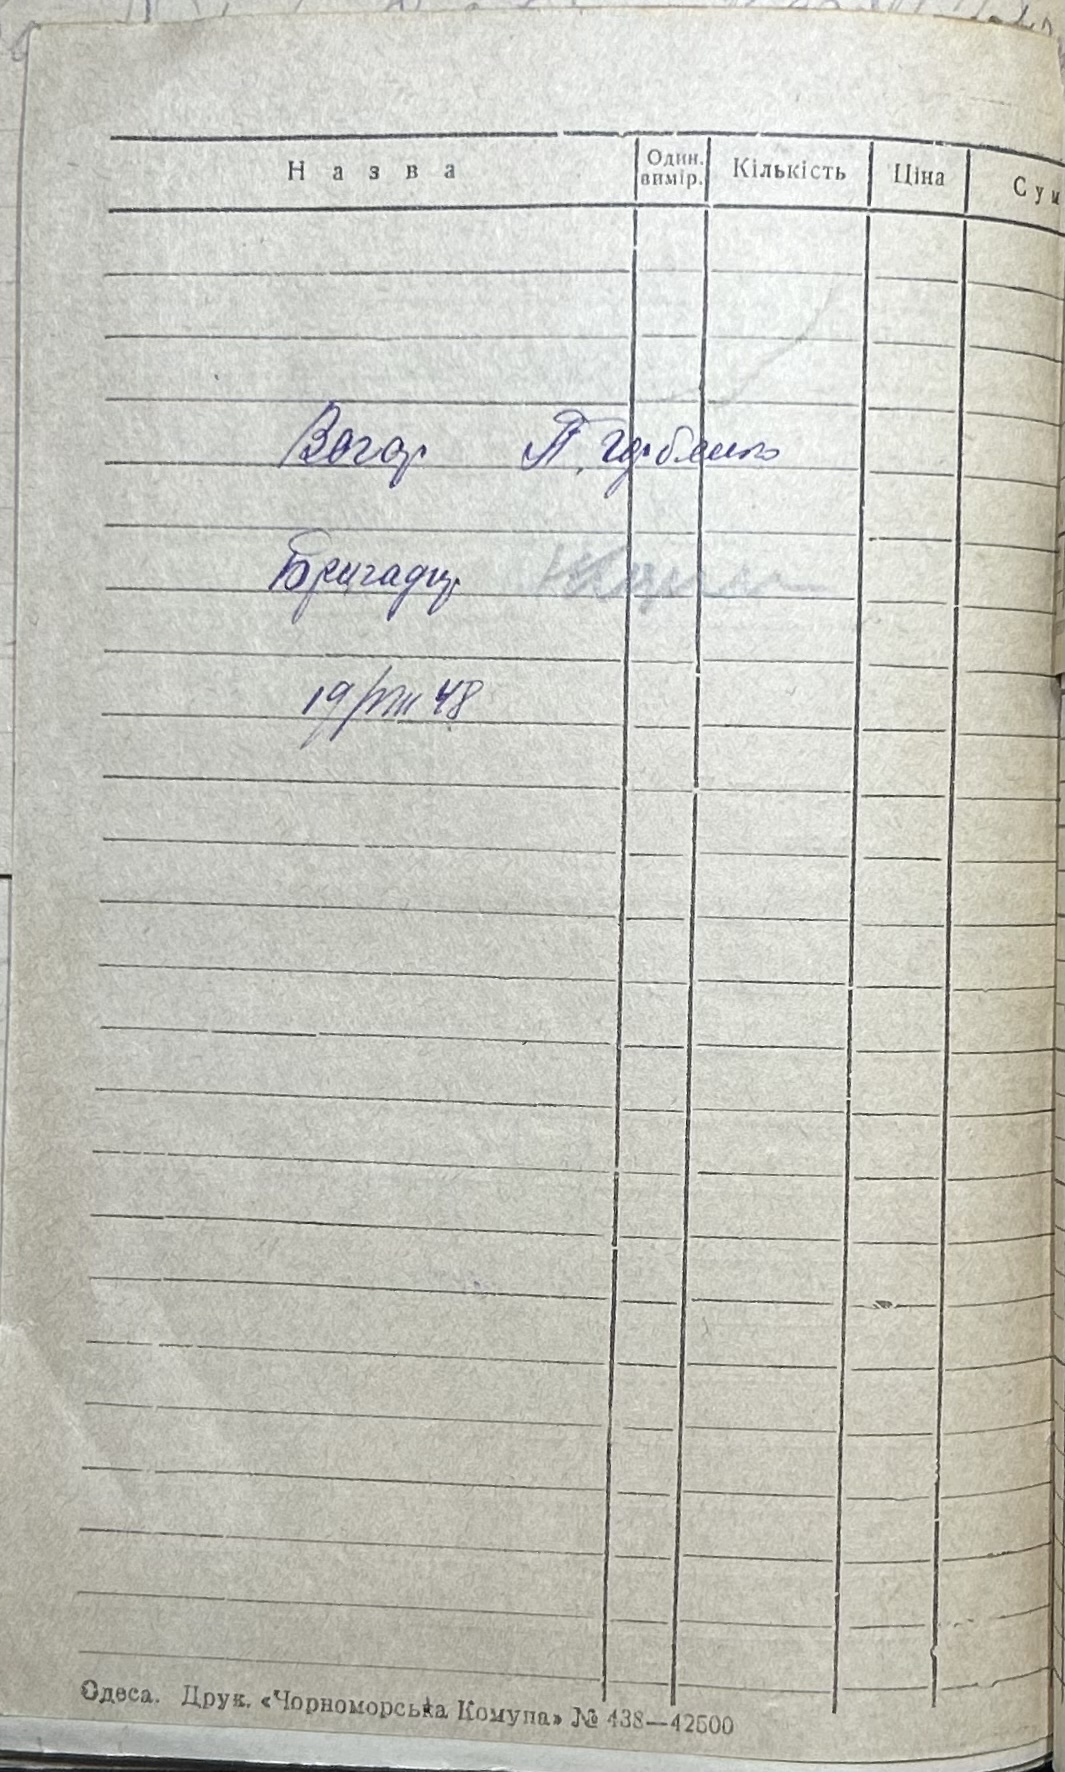 Назва Один. вимір. Кількість Ціна Сум
Вагар П. Горбенко
Бригадир
19/VIII 48
Одеса. Друк. «Чорноморська Комуна» № 438—42500